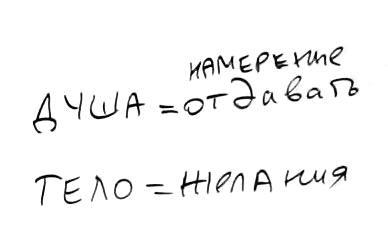 НАМЕРЕНИЕ
ДУША = ОТДАВАТЬ
ТЕЛО = ЖЕЛАНИЯ